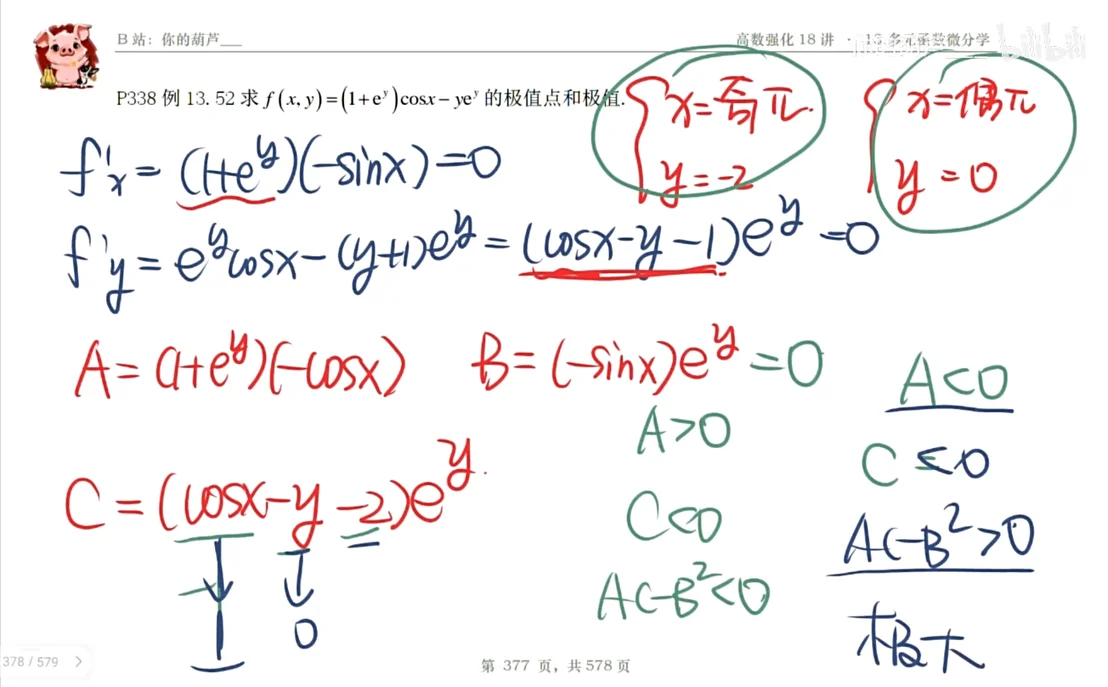 B 站：你的葫芦___
高数强化 18 讲 · 13 多元函数微分学
bilibili
P338 例 13.52 求 f(x,y)=(1+e^y)cosx-ye^y 的极值点和极值.
x=奇π.
y=-2
x=偶π
y=0
f'x=(1+e^y)(-sinx)=0
f'y=e^ycosx-(y+1)e^y=(cosx-y-1)e^y=0
A=(1+e^y)(-cosx)
B=(-sinx)e^y=0
A>0
A<0
C=(cosx-y-2)e^y.
C<0
C≤0
AC-B²<0
AC-B²>0
0
极大
378 / 579 >
第 377 页，共 578 页